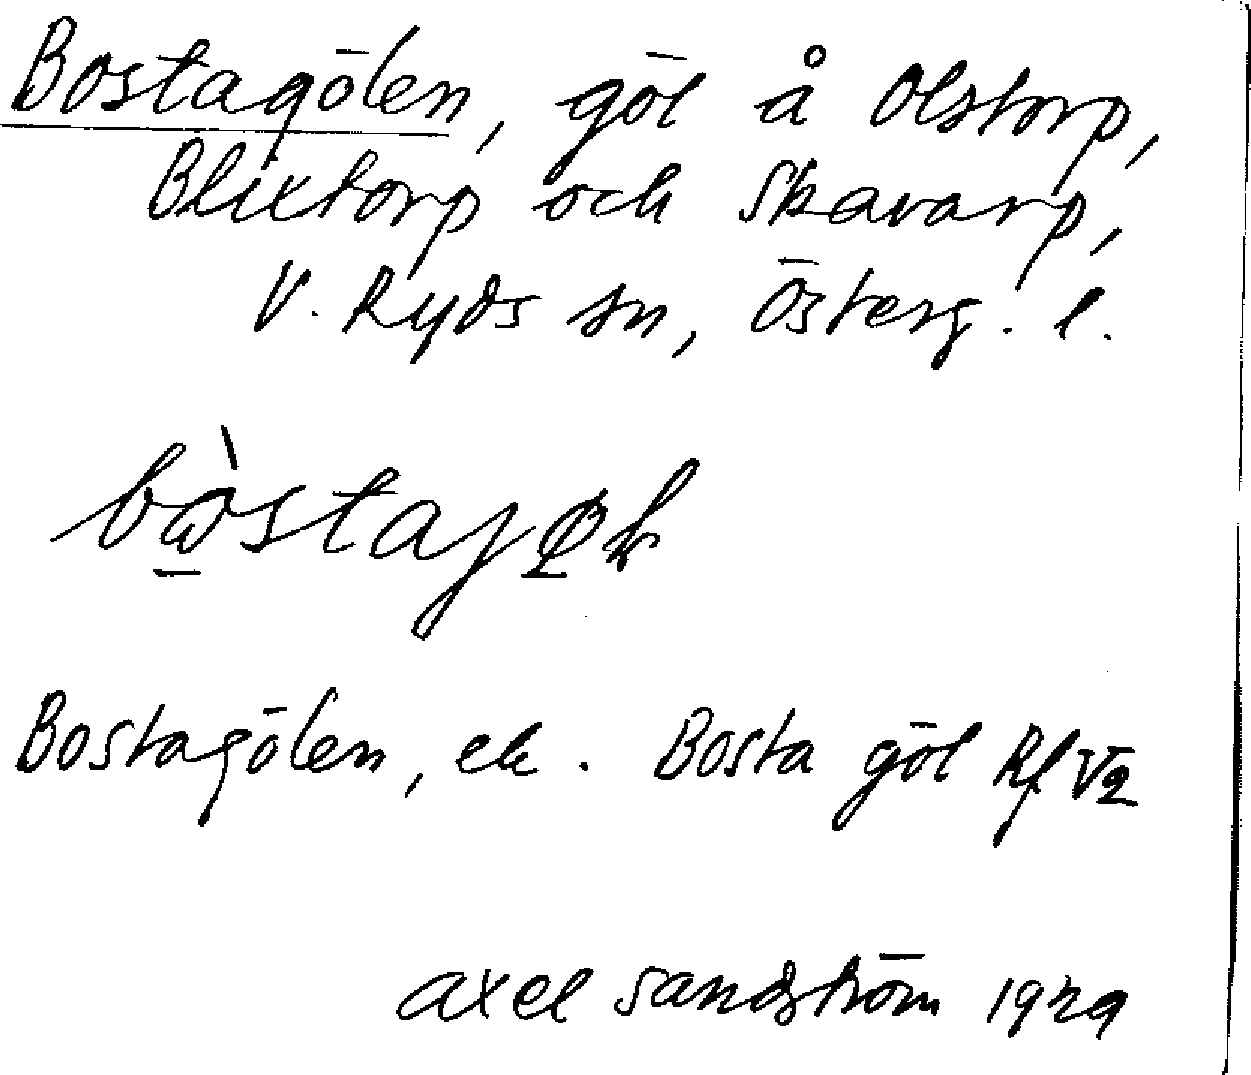 Bostagölen, göl å Olstorp,
Blixtorp och Skavarp,
V. Ryds sn, Österg. l.
Bostagölen, ek. Bosta göl Rf V2
Axel Sandström 1929